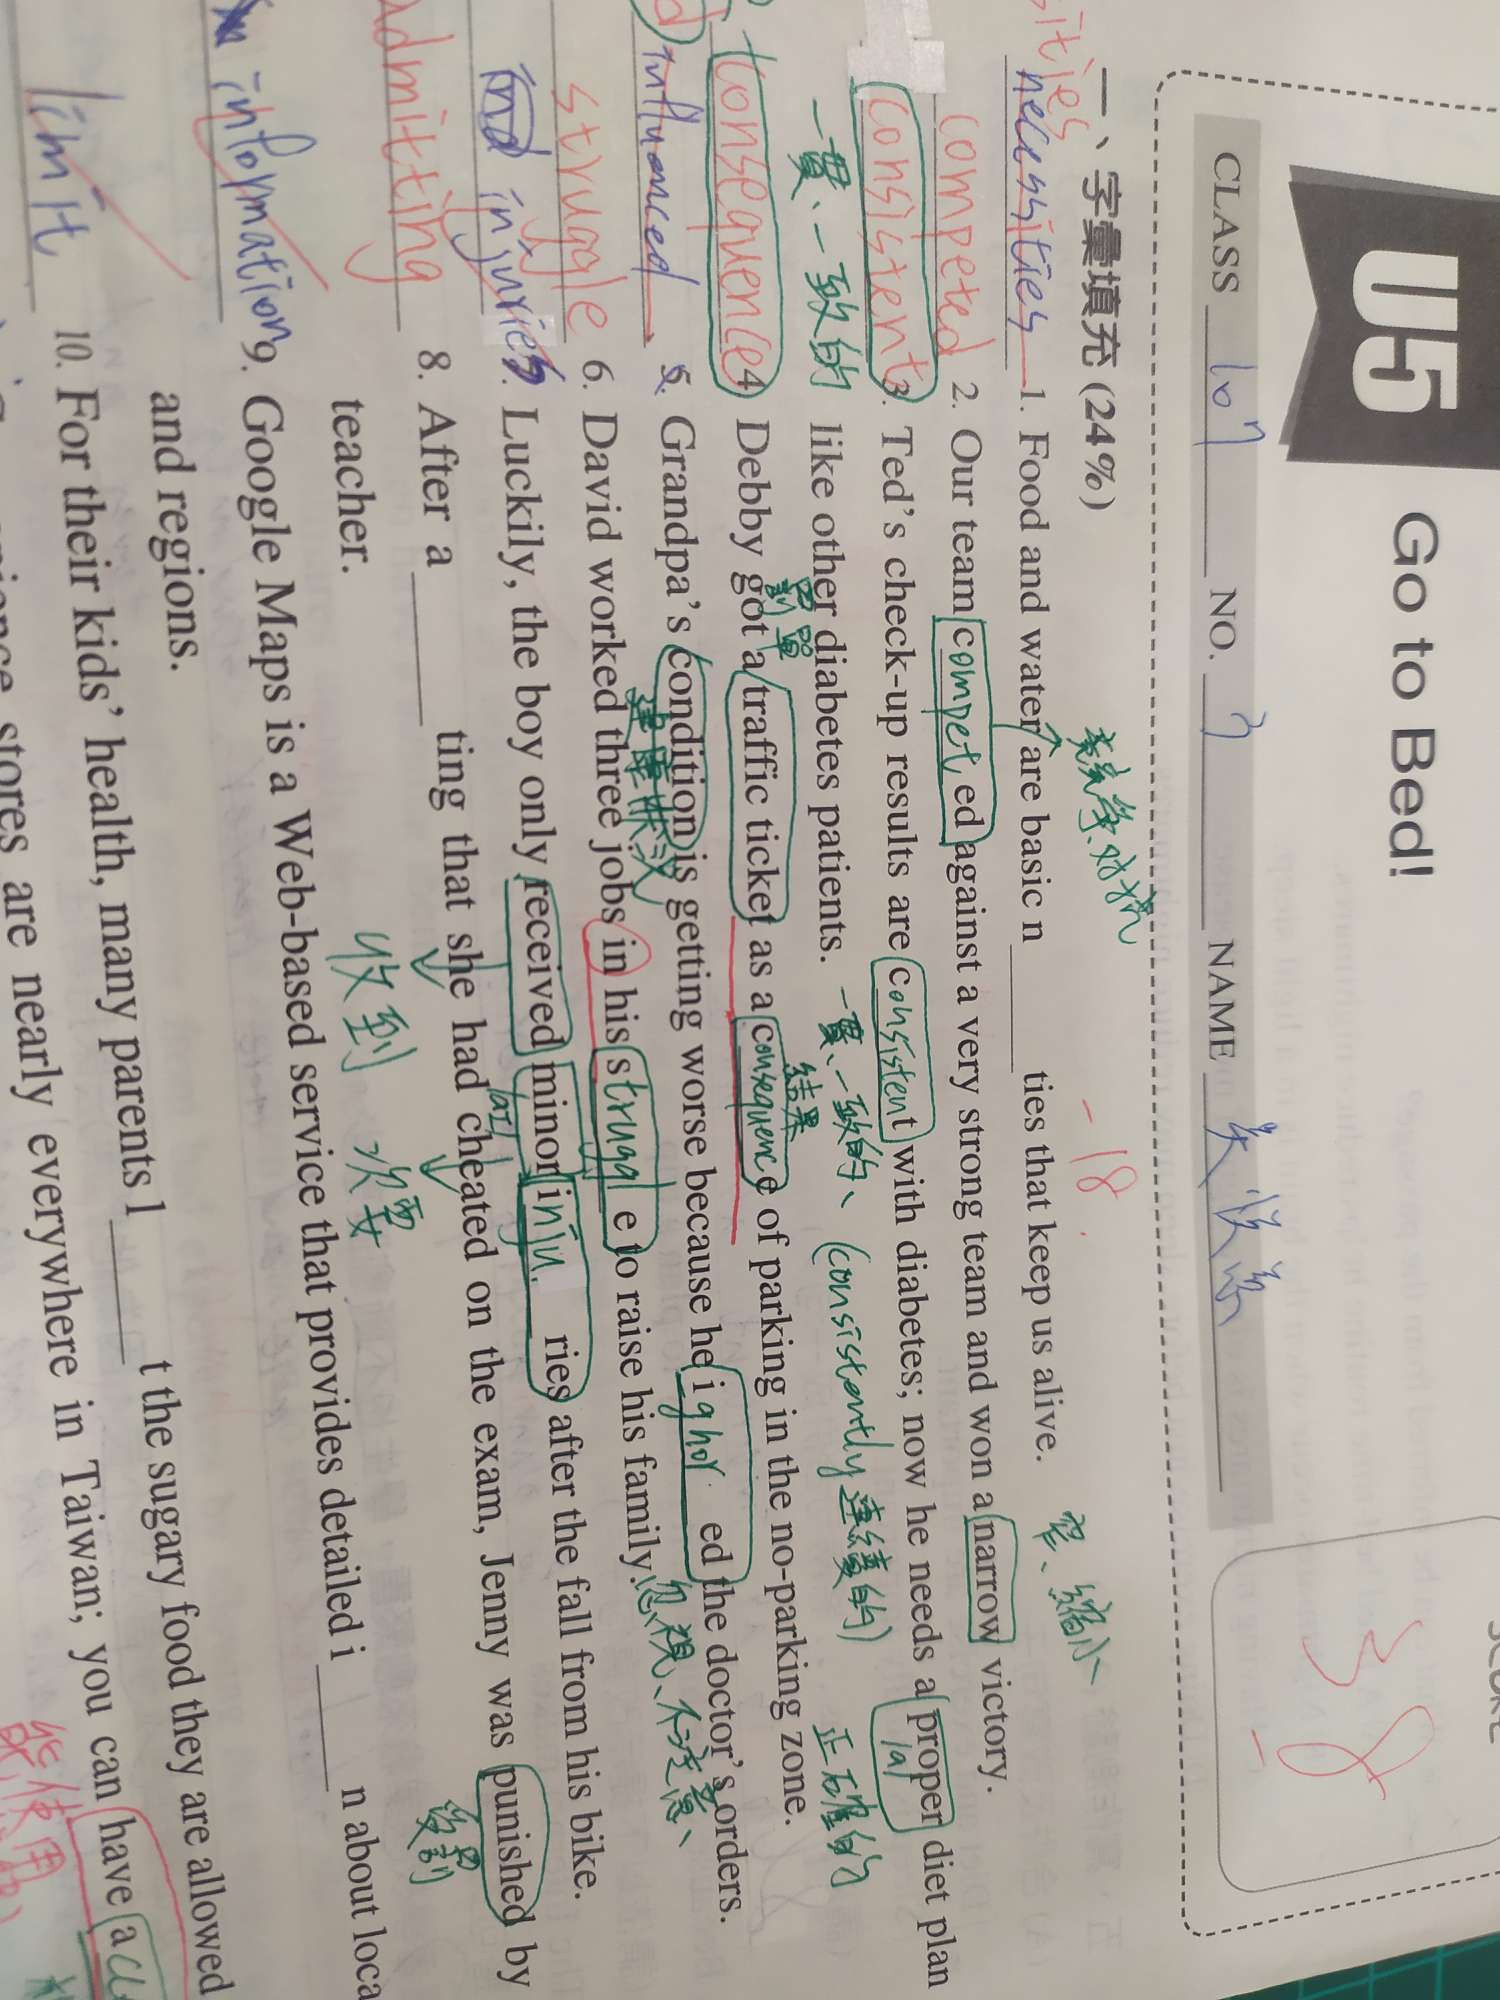 U5 Go to Bed!
SCORE
CLASS 107 NO. 7 NAME
38
一、字彙填充 (24%)
-18
競爭、對抗
窄、縮小
necessities 1. Food and water are basic n______ties that keep us alive.
competed 2. Our team competed against a very strong team and won a narrow victory.
consistent 3. Ted's check-up results are consistent with diabetes; now he needs a proper diet plan
一貫、一致的 like other diabetes patients. 一貫、一致的、(consistently 連續的) 正確的
罰單 結果
consequence 4. Debby got a traffic ticket as a consequence of parking in the no-parking zone.
influenced 5. Grandpa's condition is getting worse because he ignored the doctor's orders.
健康狀況 忽視、不注意、
struggle 6. David worked three jobs in his struggle to raise his family.
injuries 7. Luckily, the boy only received minor injuries after the fall from his bike.
admitting 8. After a______ting that she had cheated on the exam, Jenny was punished by
teacher. 收到 次要 處罰
information 9. Google Maps is a Web-based service that provides detailed i______n about loca
and regions.
limit 10. For their kids' health, many parents l______t the sugary food they are allowed
stores are nearly everywhere in Taiwan; you can have a